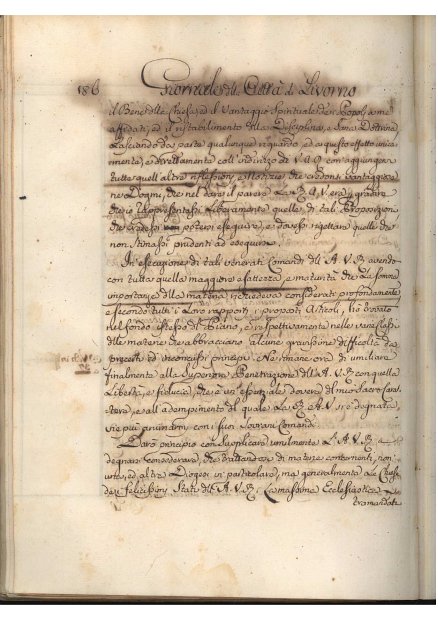 186 Giornale della Città di Livorno
il Bene della Chiesa, ed il Vantaggio Spirituale de Popoli a me
affidati, ed il ristabilimento della Disciplina, e Sana Dottrina
Lasciando da parte qualunque riguardo, ed a questo effetto unica-
mente, e direttamente coll' indirizzo di V.A.R. con aggiunger
tutte quell' altre riflessioni, e Notizie che credono vantaggiose
ne Dogmi, che nel dare il parere La R.A.V. era gradire
che io Le rappresentassi Liberamente quelle di tali Proposizioni
che credessi poter eseguire, e dovessi rigettare quelle che
non stimassi prudenti ad eseguire.
In esecuzione di tali venerati Comandi dell' A.V.R. avendo
con tutta quella maggiore esattezza, e maturità che La somma
importanza della materia richiedeva considerati profondamente
e secondo tutti i Loro rapporti i proposti Articoli, ho trovato
nel fondo stesso del Piano, e rispettivamente nelle varie classi
delle materie che abbracciano alcune gravissime difficoltà da
precetti ed inconcussi principj. Ne rimane ora di umiliare
finalmente alla Superiore Penetrazione dell' A.V.R. con quella
Libertà, e fiducia, che è un' essenziale dovere del mio sacro Carat-
tere, e all' adempimento al quale La R.A.V. si è degnata
vie più animarmi con i suoi Sovrani Comandi.
Darò principio con Supplicare umilmente L' A.V.R. a
degnarsi considerare, che trattandosi di materie concernenti, non
una, ed altra Diogesi in particolare, ma generalmente alle Chiese
de felicissimi Stati dell' A.V.R. La massima Ecclesiastica
tramandata